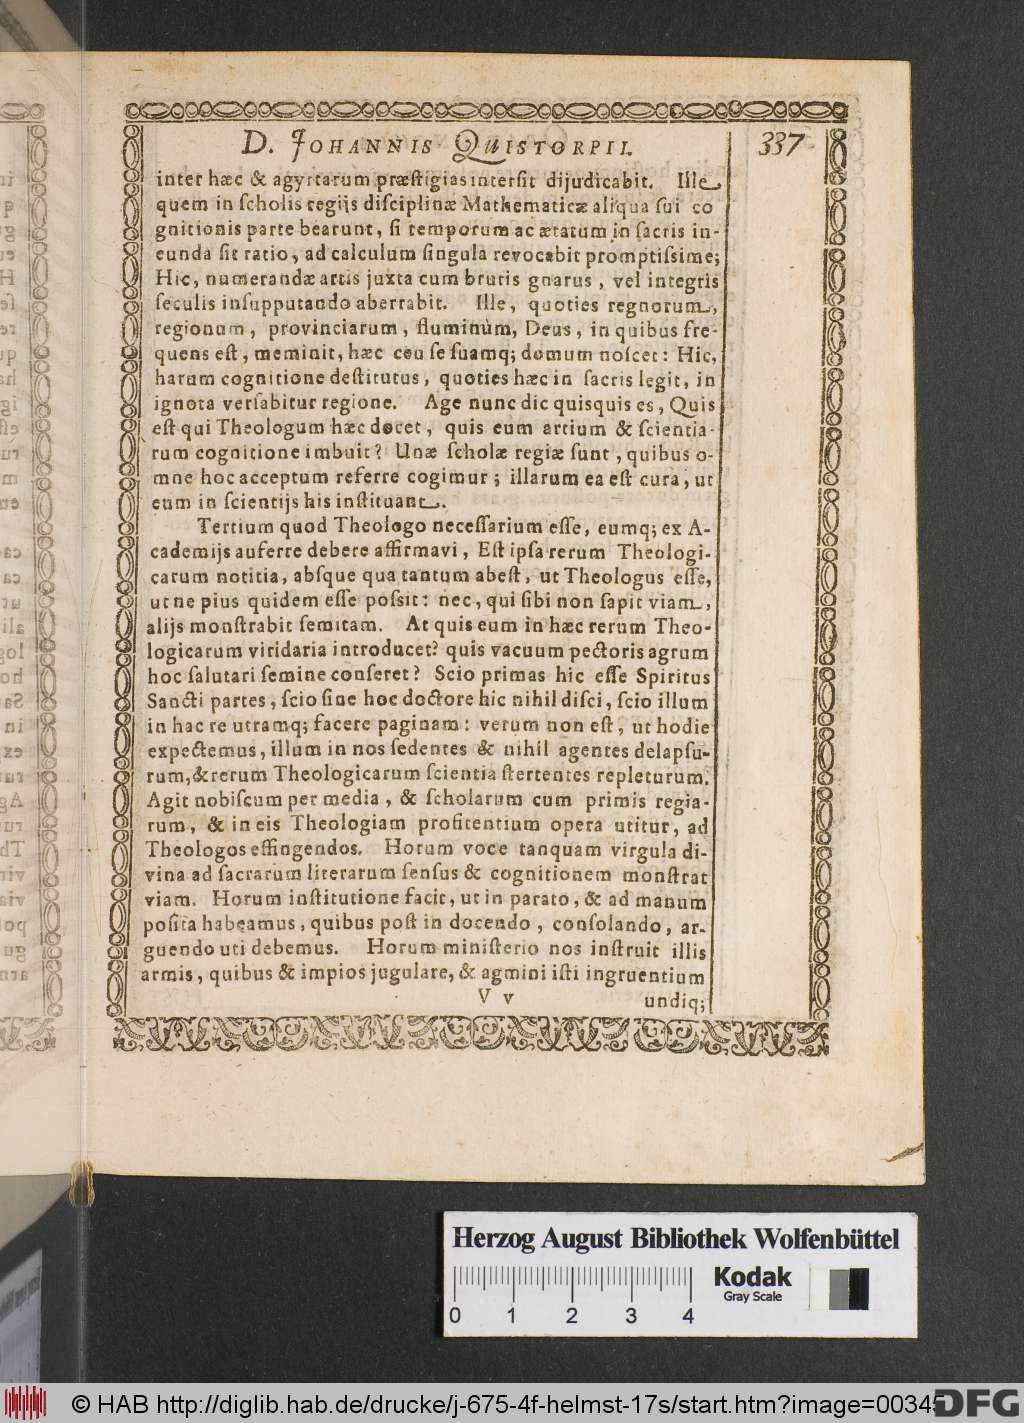 D. JOHANNIS QUISTORPII. 337
inter hæc & agyrtarum præſtigias interſit dijudicabit. Ille
quem in ſcholis regijs diſciplinæ Mathematicæ aliqua ſui co
gnitionis parte bearunt, ſi temporum ac ætatum in ſacris in-
eunda ſit ratio, ad calculum ſingula revocabit promptiſsime;
Hic, numerandæ artis juxta cum brutis gnarus, vel integris
ſeculis inſupputando aberrabit. Ille, quoties regnorum,
regionum, provinciarum, fluminùm, Deus, in quibus fre-
quens eſt, meminit, hæc ceu ſe ſuamq; domum noſcet: Hic,
harum cognitione deſtitutus, quoties hæc in ſacris legit, in
ignota verſabitur regione. Age nunc dic quisquis es, Quis
eſt qui Theologum hæc docet, quis eum artium & ſcientia-
rum cognitione imbuit? Unæ ſcholæ regiæ ſunt, quibus o-
mne hoc acceptum referre cogimur; illarum ea eſt cura, ut
eum in ſcientijs his inſtituant.
Tertium quod Theologo neceſſarium eſſe, eumq; ex A-
cademijs auferre debere affirmavi, Eſt ipſa rerum Theologi-
carum notitia, abſque qua tantum abeſt, ut Theologus eſſe,
ut ne pius quidem eſſe poſsit: nec, qui ſibi non ſapit viam,
alijs monſtrabit ſemitam. At quis eum in hæc rerum Theo-
logicarum viridaria introducet? quis vacuum pectoris agrum
hoc ſalutari ſemine conſeret? Scio primas hic eſſe Spiritus
Sancti partes, ſcio ſine hoc doctore hic nihil diſci, ſcio illum
in hac re utramq; facere paginam: verum non eſt, ut hodie
expectemus, illum in nos ſedentes & nihil agentes delapſu-
rum, & rerum Theologicarum ſcientia ſtertentes repleturum.
Agit nobiſcum per media, & ſcholarum cum primis regia-
rum, & in eis Theologiam profitentium opera utitur, ad
Theologos effingendos. Horum voce tanquam virgula di-
vina ad ſacrarum literarum ſenſus & cognitionem monſtrat
viam. Horum inſtitutione facit, ut in parato, & ad manum
poſita habeamus, quibus poſt in docendo, conſolando, ar-
guendo uti debemus. Horum miniſterio nos inſtruit illis
armis, quibus & impios jugulare, & agmini iſti ingruentium
V v undiq;
Herzog August Bibliothek Wolfenbüttel
Kodak
Gray Scale
0 1 2 3 4
© HAB http://diglib.hab.de/drucke/j-675-4f-helmst-17s/start.htm?image=00345
DFG